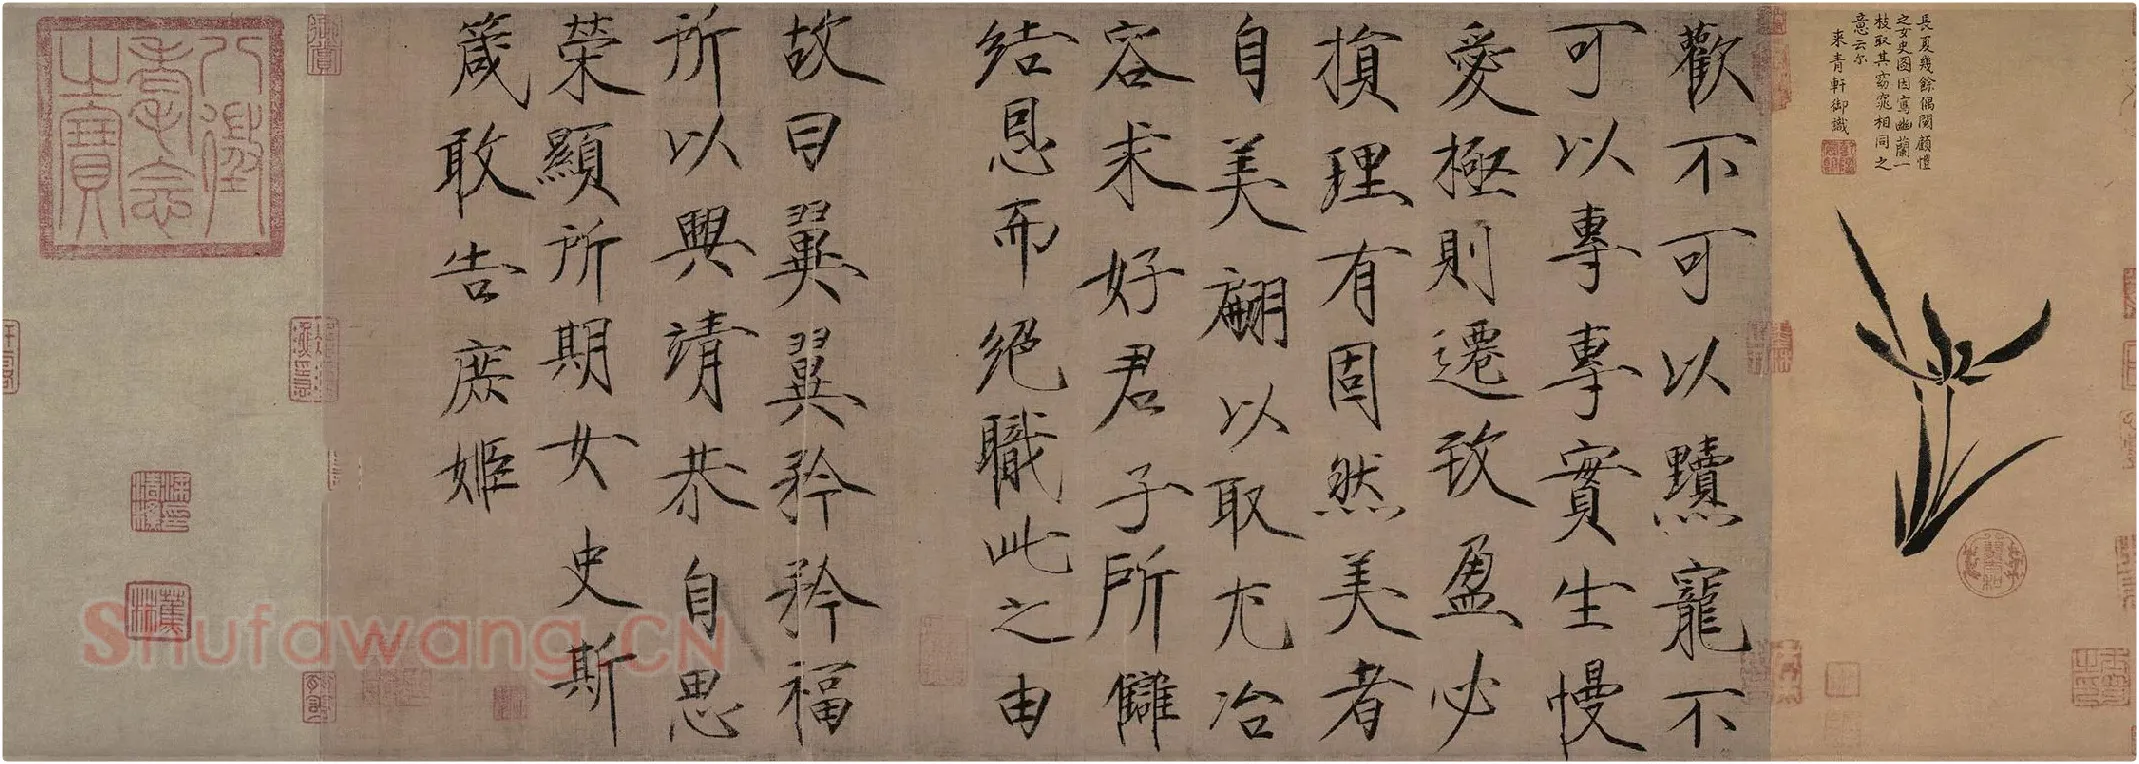 長夏幾餘偶閱顧愷
之女史圖因寫幽蘭一
枝取其窈窕相同之
意云尔
来青軒御識
歡不可以黷寵不
可以專專實生慢
愛極則遷致盈必
損理有固然美者
自美翩以取尤冶
容求好君子所讎
結恩而絕職此之由
故曰翼翼矜矜福
所以興靖恭自思
榮顯所期女史斯
箴敢告庶姬
八徵
耄念
之寶
Shufawang.CN